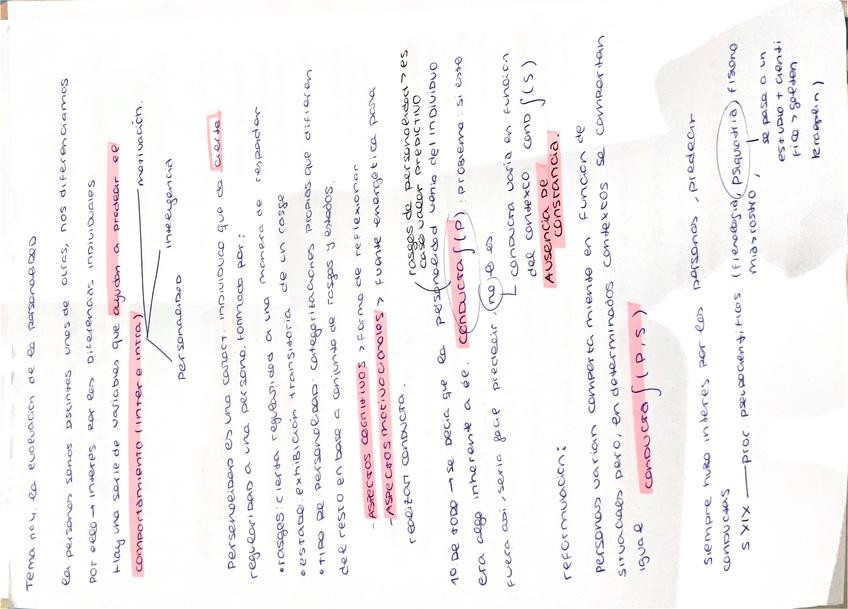 Tema nº4. la evaluación de la personalidad
las personas somos distintas unas de otras, nos diferenciamos
por ello → interés por las diferencias individuales
Hay una serie de variables que ayudan a predecir el
comportamiento (inter e intra)
motivación.
inteligencia
personalidad
Personalidad es una caract. individuo que da cierta
regularidad a una persona, formado por:
•rasgos: cierta regularidad a una manera de responder
•estado: exhibición transitoria de un rasgo
•tipo de personalidad: categorizaciones propias que difieren
del resto en base a conjunto de rasgos y estados.
-ASPECTOS COGNITIVOS > forma de reflexionar
-ASPECTOS MOTIVACIONALES > fuente energética para
realizar conducta.
rasgos de personalidad > es
casi valor PREDICTIVO
1º DE TODO → se decía que la personalidad venía del INDIVIDUO
era algo inherente a él. CONDUCTA ∫(P) problema: si esto
fuera así, sería fácil predecir, no lo es.
conducta varía en función
del contexto COND ∫(S)
AUSENCIA DE
CONSTANCIA.
reformulación:
Personas varían comportamiento en función de
situaciones pero, en determinados contextos se comportan
igual conducta ∫(P,S)
siempre hubo interés por las personas, predecir
conductas
S XIX — proc. pseudocientíficos (frenología, psiquiatría, fisiono
mía>rostro,
se pasa a un
estudio + cientí
fico > galton
kraepelin)